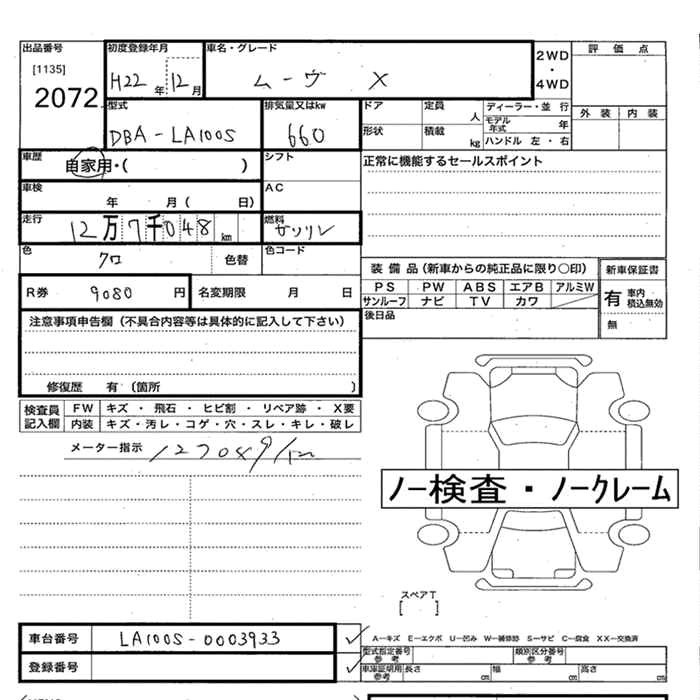 出品番号 初度登録年月 車名・グレード 2WD・4WD 評価点
[1135]
2072 H22年 12月 ムーヴ X 外装 内装
型式 排気量又はkw ドア 定員 人 ディーラー・並行
DBA-LA100S 660 モデル年式 年
形状 積載 kg ハンドル 左・右
車歴 自家用・( ) シフト 正常に機能するセールスポイント
車検 年 月( 日) AC
走行 12万7千048km 燃料 ガソリン
色 クロ 色替 色コード
装備品(新車からの純正品に限り○印) 新車保証書
R券 9080円 名変期限 月 日 PS PW ABS エアB アルミW 有 車内積込無効
サンルーフ ナビ TV カワ
注意事項申告欄(不具合内容等は具体的に記入して下さい) 後日品 無
修復歴 有(箇所 )
検査員記入欄 FW キズ・飛石・ヒビ割・リペア跡・X要
内装 キズ・汚レ・コゲ・穴・スレ・キレ・破レ
メーター指示 127049km
ノー検査・ノークレーム
スペアT
[ ]
車台番号 LA100S-0003933 A－キズ E－エクボ U－凹み W－補修跡 S－サビ C－腐食 XX－交換済
型式指定番号 参考 類別区分番号 参考
登録番号 車庫証明用 参考 長さ cm 幅 cm 高さ cm